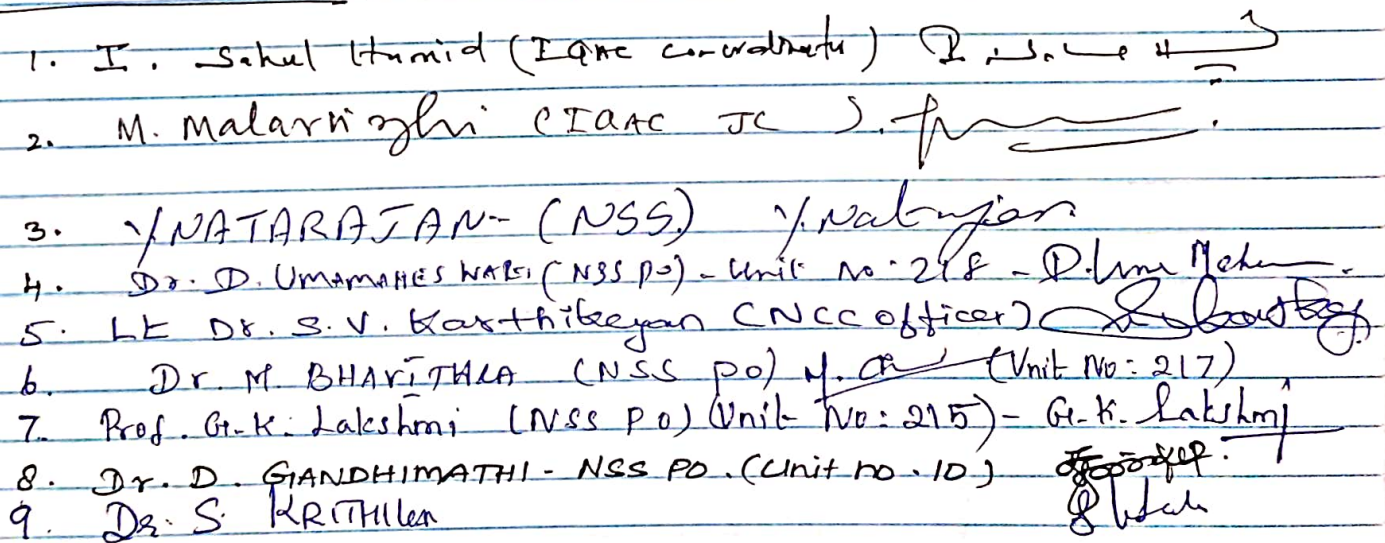 1. I. Sahul Hamid (IQAC co-ordinator)
2. M. Malarvizhi (IQAC JC).
3. Y NATARAJAN - (NSS) Y. Natarajan
4. Dr. D. UMAMAHESWARI (NSS PO) - Unit No - 218 - D. Uma Mahe
5. Lt Dr. S. V. Karthikeyan (NCC officer)
6. Dr. M. BHARITHLA (NSS PO) (Unit No: 217)
7. Prof. G. K. Lakshmi (NSS PO) (Unit No: 215) - G. K. Lakshmi
8. Dr. D. GANDHIMATHI - NSS PO. (Unit no. 10)
9. Dr. S.